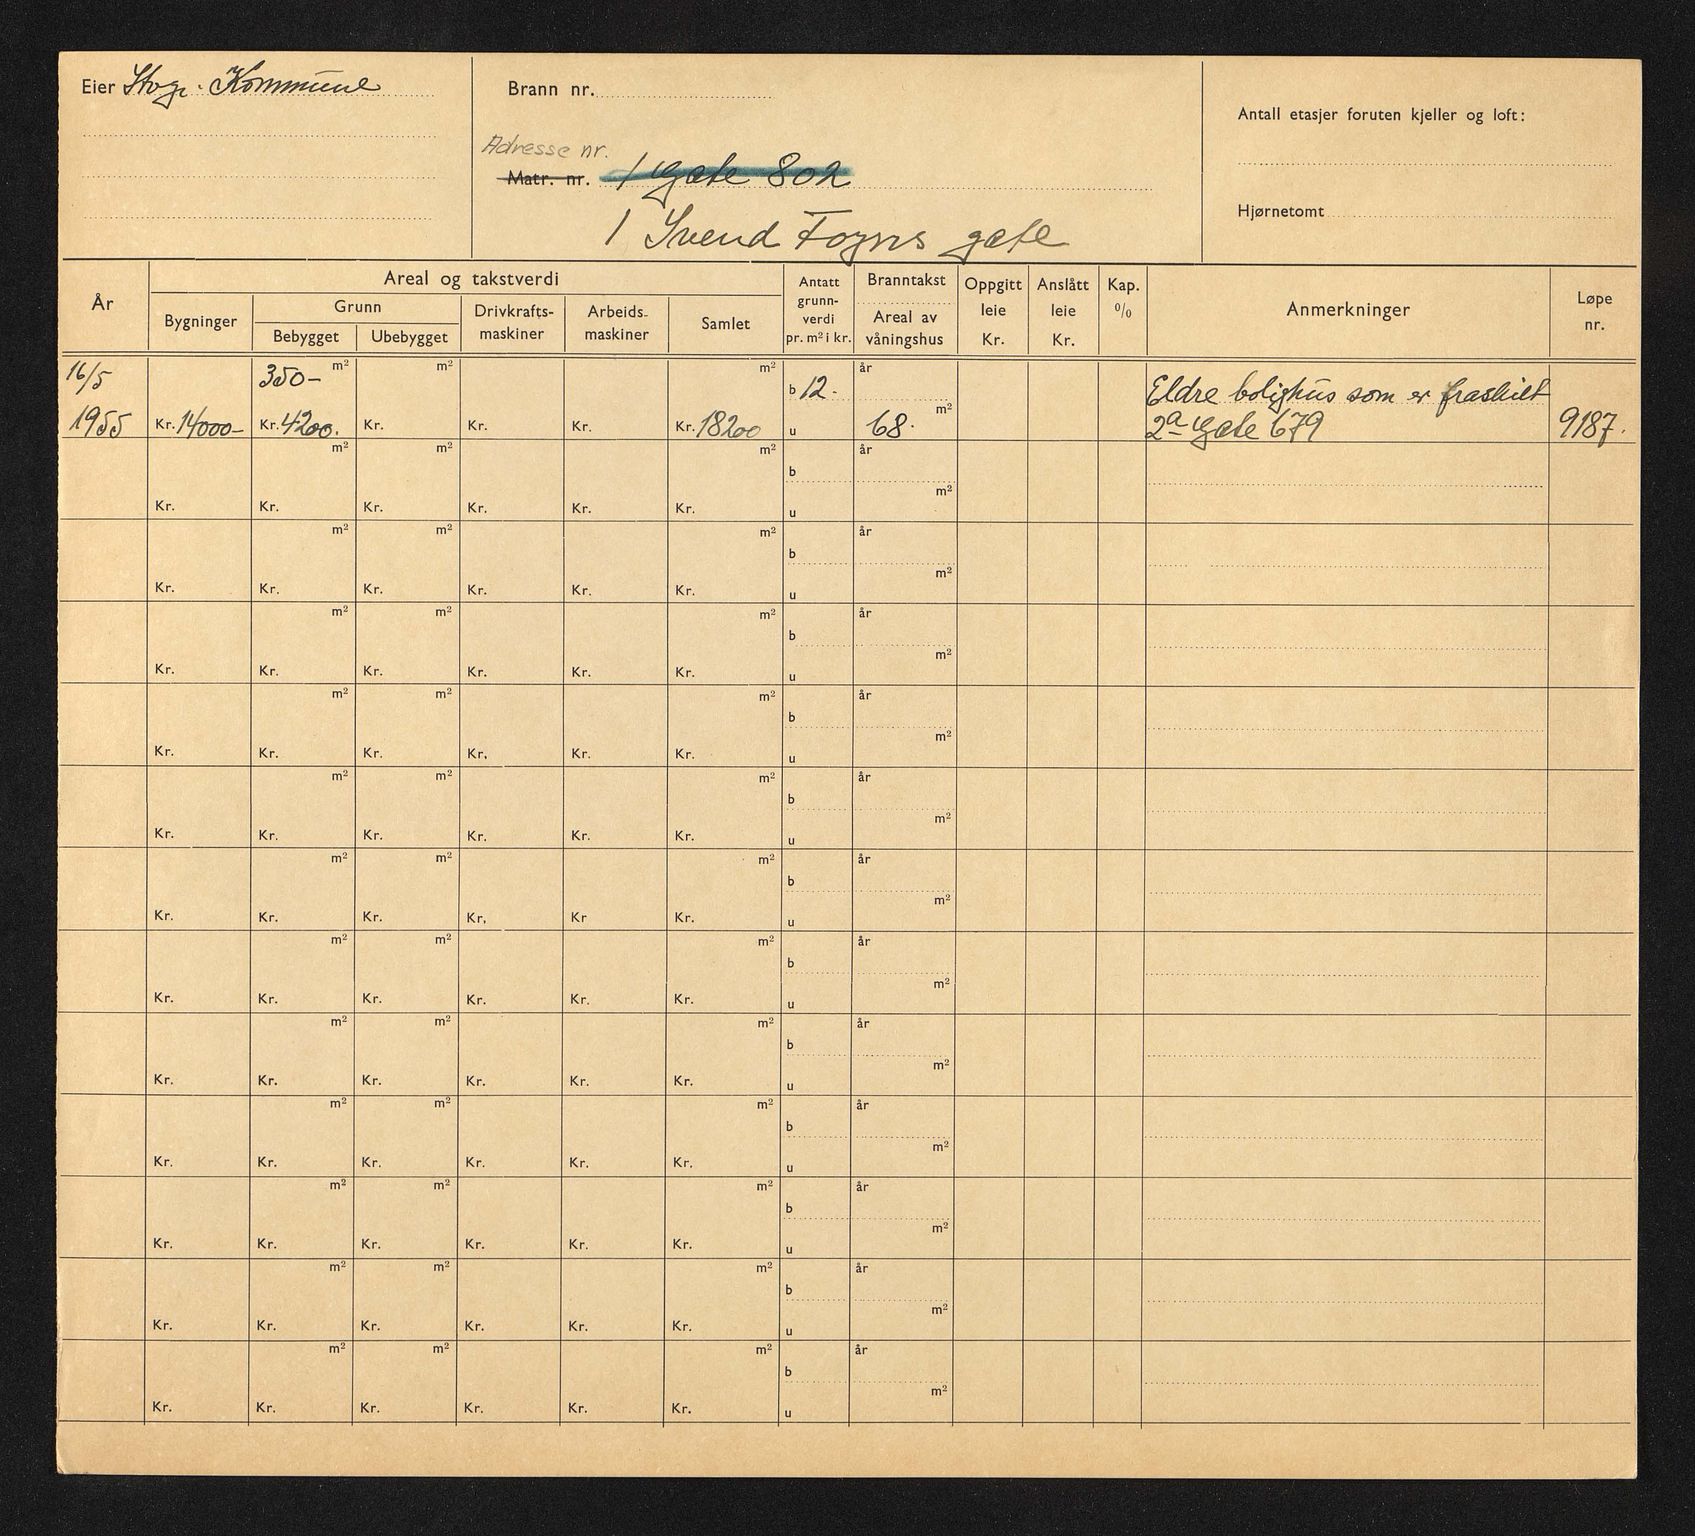 Eier Stvgr. Kommune
Brann nr.
Antall etasjer foruten kjeller og loft:
Adresse nr.
Matr. nr. 1 Gate 802
Hjørnetomt
1 Svend Foyns gate
År
Areal og takstverdi
Bygninger
Grunn
Bebygget
Ubebygget
Drivkrafts-
maskiner
Arbeids-
maskiner
Samlet
Antatt
grunn-
verdi
pr. m² i kr.
Branntakst
Areal av
våningshus
Oppgitt
leie
Kr.
Anslått
leie
Kr.
Kap.
%
Anmerkninger
Løpe
nr.
16/5 350- m² m² m² b 12.- år Eldre bolighus som er fraskilt
1955 Kr. 14000- Kr. 4200. Kr. Kr. Kr. Kr. 18200 u 68. m² 2a Gate 679 9187.
m² m² m² b år
Kr. Kr. Kr. Kr. Kr. Kr. u m²
m² m² m² b år
Kr. Kr. Kr. Kr. Kr. Kr. u m²
m² m² m² b år
Kr. Kr. Kr. Kr. Kr. Kr. u m²
m² m² m² b år
Kr. Kr. Kr. Kr. Kr. Kr. u m²
m² m² m² b år
Kr. Kr. Kr. Kr. Kr. Kr. u m²
m² m² m² b år
Kr. Kr. Kr. Kr. Kr Kr. u m²
m² m² m² b år
Kr. Kr. Kr. Kr. Kr. Kr. u m²
m² m² m² b år
Kr. Kr. Kr. Kr. Kr. Kr. u m²
m² m² m² b år
Kr. Kr. Kr. Kr. Kr. Kr. u m²
m² m² m² b år
Kr. Kr. Kr. Kr. Kr. Kr. u m²
m² m² m² b år
Kr. Kr. Kr. Kr. Kr. Kr. u m²
m² m² m² b år
Kr. Kr. Kr. Kr. Kr. Kr. u m²